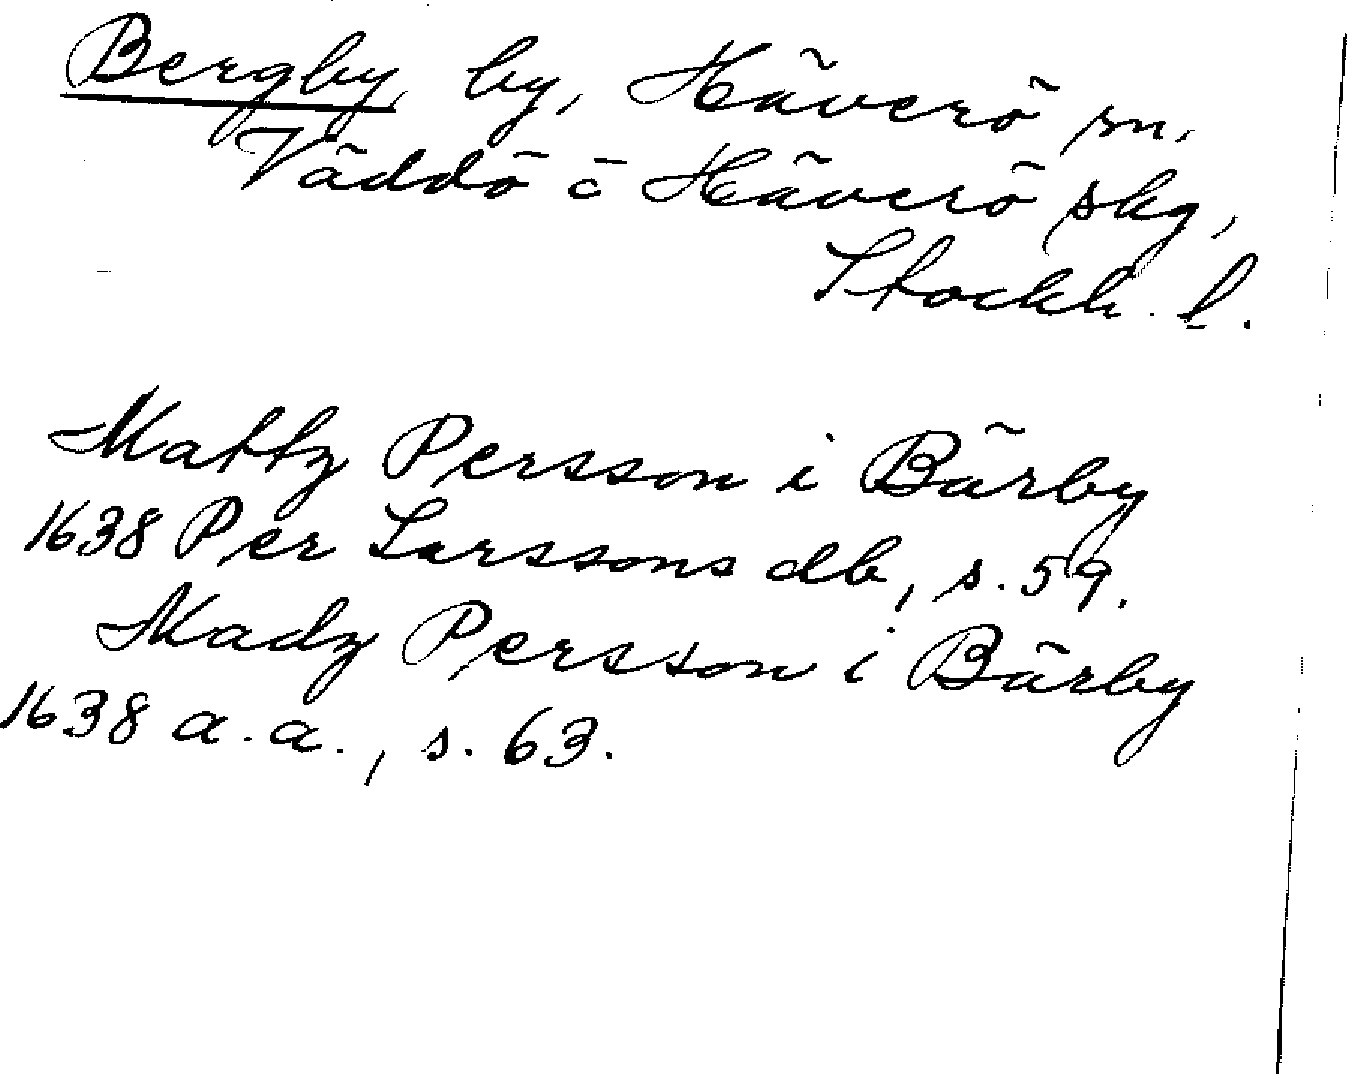 Bergby, by, Häverö sn,
Väddö o Häverö skg,
Stockh. l.
Mattz Persson i Bärby
1638 Per Larssons db, s. 59.
Madz Persson i Bärby
1638 a.a., s. 63.